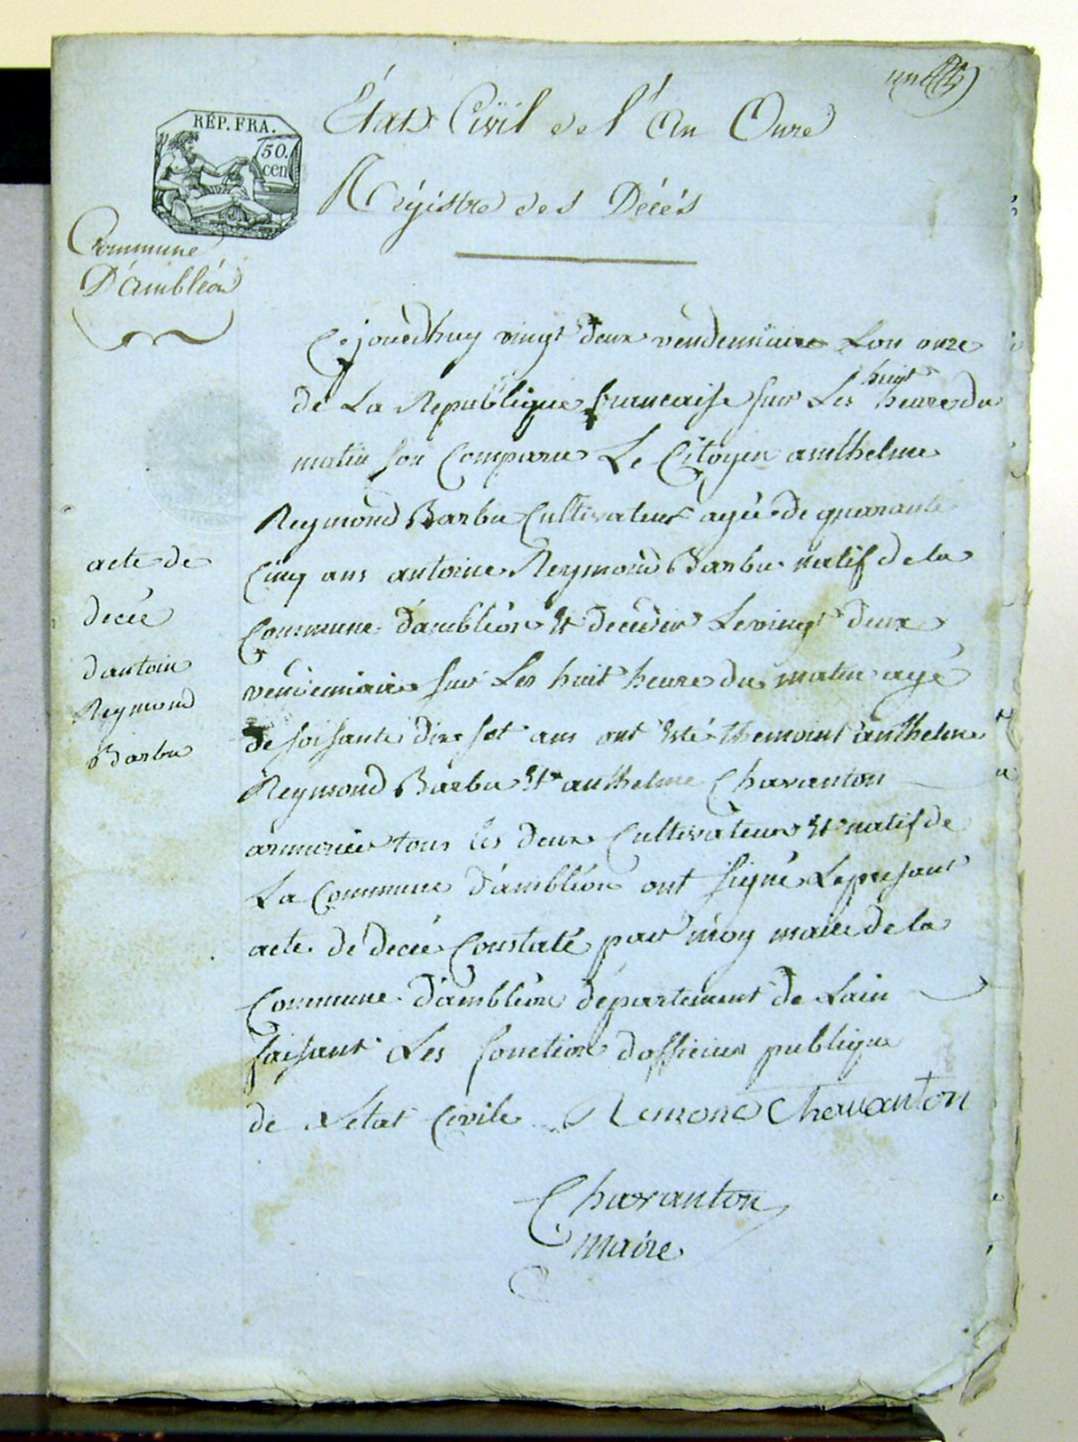 un
RÉP. FRA.
50.
cen
État Civil de l'An Onze
Régistre des Décés
Commune
D'ambléon
Cejourdhuy vingt deux vendemiaire Lon onze
de La Republique francaise sur Les huit heure du
matin son Comparu Le Citoyen anthelme
Reymond Barbu Cultivateur agé de quarante
Cinq ans antoine Reymond Barbu natif de la
Commune d'ambléon et decédé Le vingt deux
vendemiaire sur Les huit heure du matin agé
de soisante dix set ans ont été themoint anthelme
Reymond Barbu et anthelme Chavanton
armurier tous les deux Cultivateur et natif de
La Commune d'ambléon ont signé Le present
acte de decée Constaté par moy maire de la
Commune d'ambléon département de Lain
faisant Les fonction d'officier publique
de Létat Civile Remond Chavanton
Chavanton
maire
acte de
decée
dantoin
Reymond
Barbu